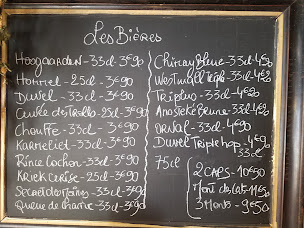 Les Bières
Hoegaarden - 33cl - 3€90
Hommel - 25cl - 3€90
Duvel - 33cl - 3€90
Cuvée des Trolls - 25cl - 3€90
Chouffe - 33cl - 3€90
Karmeliet - 33cl - 3€90
Rince Cochon - 33cl - 3€90
Kriek Cerise - 25cl - 3€90
Secret des Moines - 33cl - 3€90
Queue de Charrue - 33cl - 3€90
Chimay Bleue - 33cl - 4€90
Westmall Triple - 33cl - 4€90
33cl - 4€90
Brune - 33cl - 4€90
Orval - 33cl - 4€90
Duvel Triple hop - 4€90
33cl
75cl
2 CAPS - 10€50
Mont des Cats - 11€50
3 Monts - 9€50